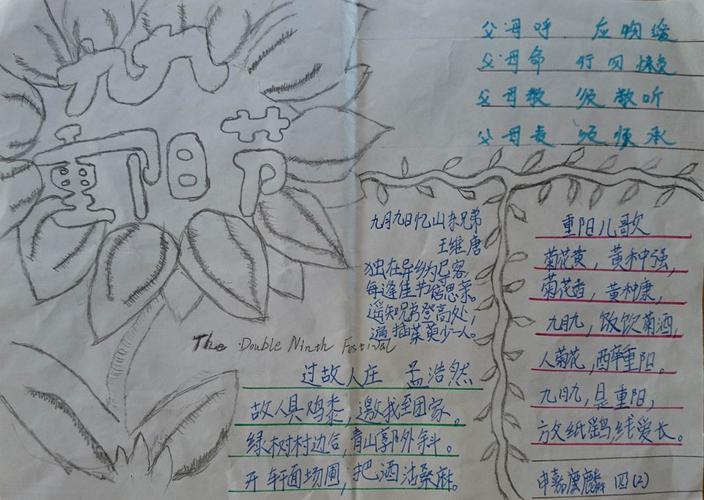 九九
重阳节
父母呼 应勿缓
父母命 行勿懒
父母教 须敬听
父母责 须顺承
九月九日忆山东兄弟
王维 唐
独在异乡为异客，
每逢佳节倍思亲。
遥知兄弟登高处，
遍插茱萸少一人。
重阳儿歌
菊花黄，黄种强，
菊花香，黄种康，
九月九，饮菊酒，
人菊花，醉重阳。
九月九，是重阳，
放纸鹞，线爱长。
The Double Ninth Festival
过故人庄 孟浩然
故人具鸡黍，邀我至田家。
绿树村边合，青山郭外斜。
开轩面场圃，把酒话桑麻。
申嘉 麟 四(2)